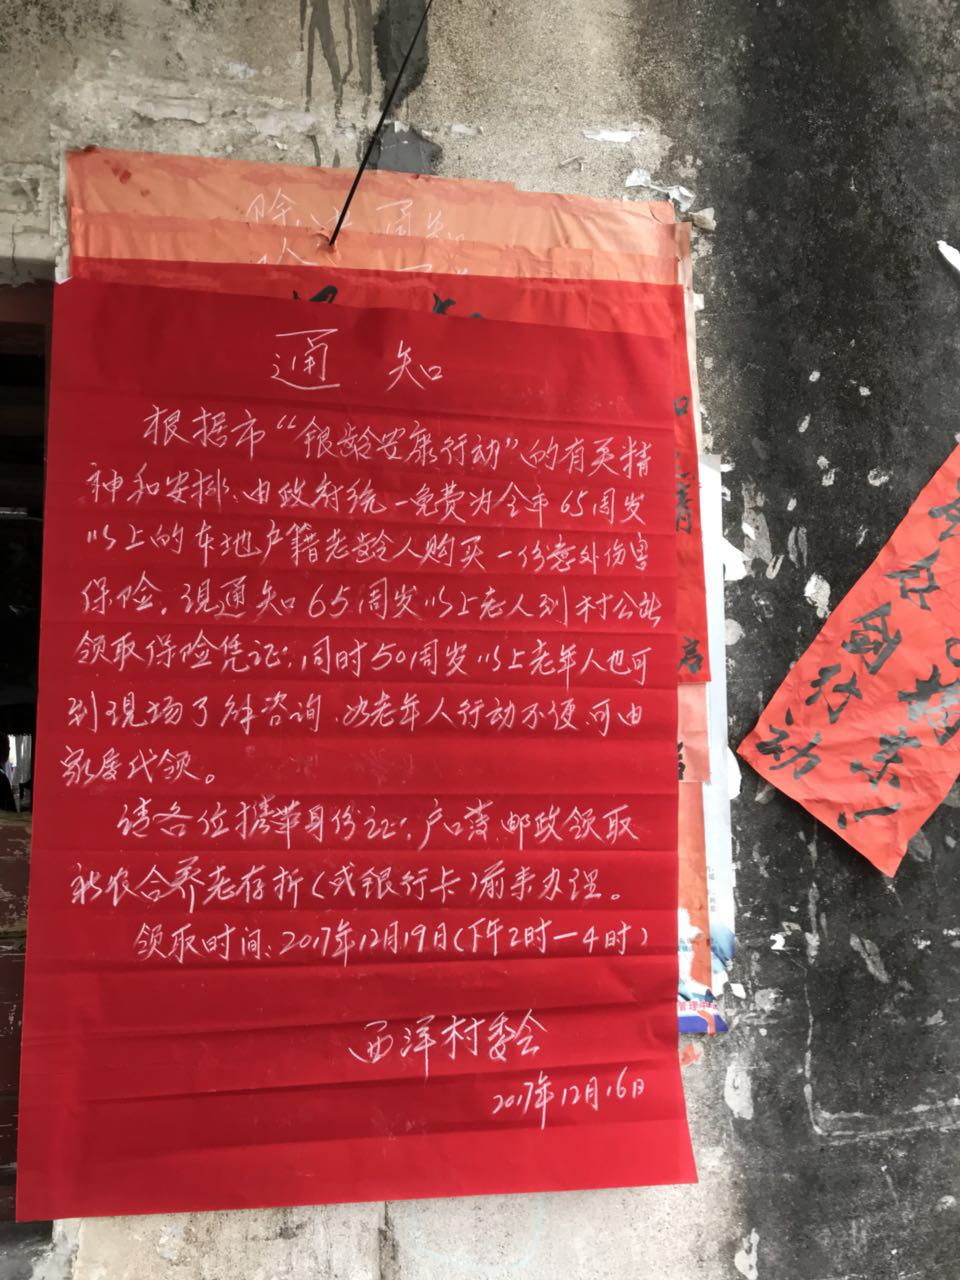 通知
通知
根据市“银龄安康行动”的有关精
神和安排、由政府统一免费为全年65周岁
以上的本地户籍老龄人购买一份意外伤害
保险。现通知65周岁以上老人到村公所
领取保险凭证;同时50周岁以上老年人也可
到现场了解咨询、如老年人行动不便、可由
家属代领。
请各位携带身份证、户口簿、邮政领取
新农合养老存折(或银行卡)前来办理。
领取时间:2017年12月19日(下午2时—4时)
西洋村委会
2017年12月16日
行动
管理中